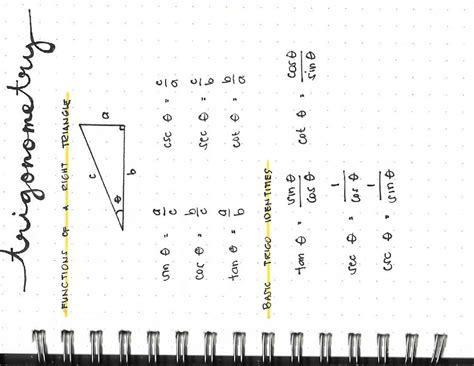 trigonometry
FUNCTIONS OF A RIGHT TRIANGLE
a
c
b
θ
sin θ = a/c   csc θ = c/a
cos θ = b/c   sec θ = c/b
tan θ = a/b   cot θ = b/a
BASIC TRIGO IDENTITIES
tan θ = sin θ/cos θ   cot θ = cos θ/sin θ
sec θ = 1/cos θ
csc θ = 1/sin θ